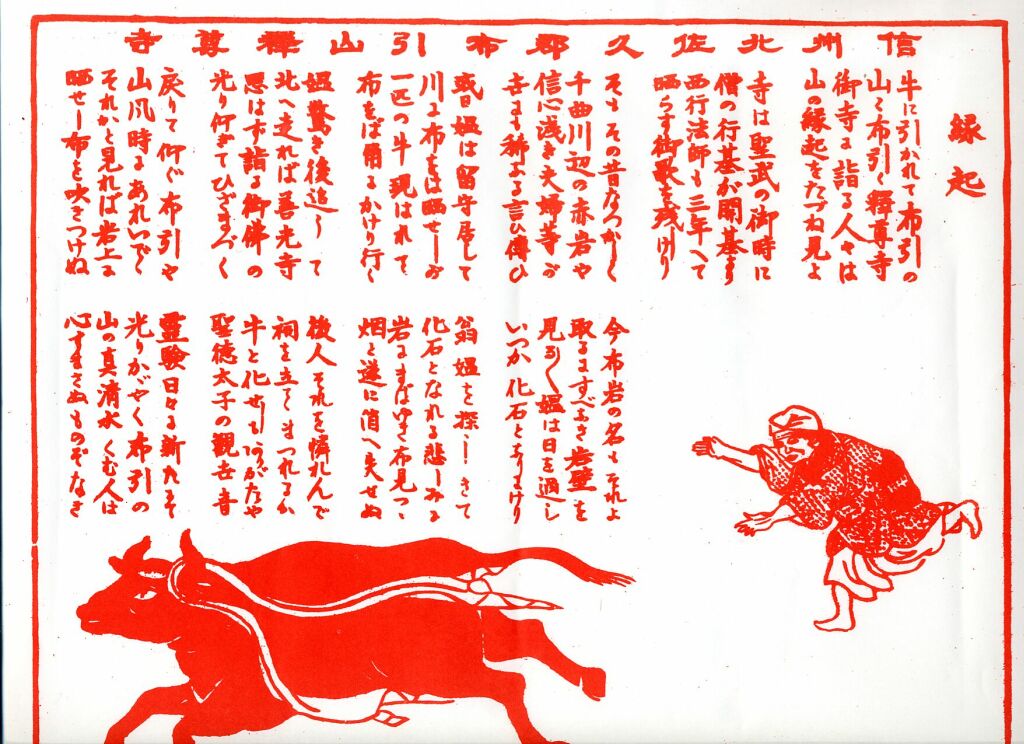 信州北佐久郡布引山釋尊寺
縁起
牛に引かれて布引の
山て布引く釋尊寺
御寺に詣る人々は
山の縁起をたづね見よ
寺は聖武の御時に
僧の行基が開基す
西行法師も三年へて
晒らす御歌を残けり
そもその昔なつかしく
千曲川辺の赤岩や
信心浅き夫婦等が
寺よ稀よる言ひ傳ひ
或日媼は留守居して
川に布をは晒せしが
一匹の牛現はれて
布をば角にかけり行く
媼驚き後追して
北へ走れば善光寺
思はず詣る御佛の
光り仰ぎてひざまづく
戻りて仰ぐ布引や
山風時にあれいでて
それかと見れば岩上に
晒せし布を吹きつけぬ
今布岩の名もそれよ
取るにすべなき岩壁を
見引く媼は日を過し
いつか化石となりにけり
翁媼を探しきて
化石となれる悲しみに
岩にまばゆき布見つゝ
烟と遂に消へ失せぬ
後人それを憐れんで
祠を立てまつれるか
牛と化せしもありがたや
聖徳太子の觀世音
霊験日々に新たにぞ
光りかゞやく布引の
山の真清水くむ人は
心すまさぬものぞなき